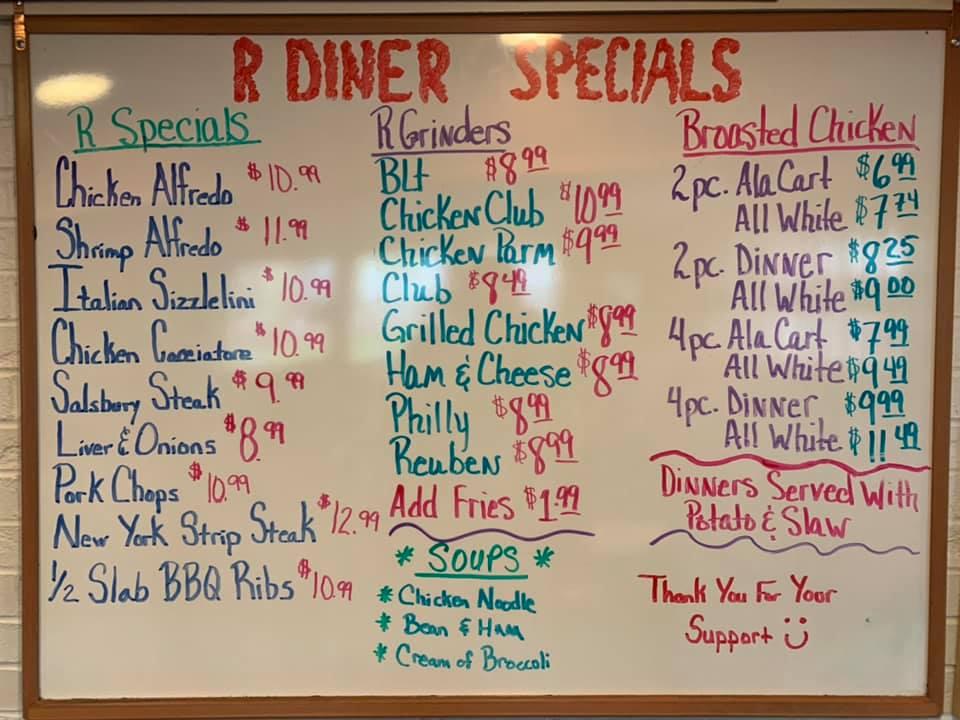 R DINER SPECIALS
R Specials
Chicken Alfredo $10.99
Shrimp Alfredo $11.99
Italian Sizzlelini $10.99
Chicken Cacciatore $10.99
Salsbury Steak $9.99
Liver & Onions $8.99
Pork Chops $10.99
New York Strip Steak $12.99
1/2 Slab BBQ Ribs $10.99
R Grinders
BLt $8.99
Chicken Club $10.99
Chicken Parm $9.99
Club $8.49
Grilled Chicken $8.99
Ham & Cheese $8.99
Philly $8.99
Reuben $8.99
Add Fries $1.99
* SOUPS *
* Chicken Noodle
* Bean & Ham
* Cream of Broccoli
Broasted Chicken
2pc. Ala Cart $6.99
All White $7.74
2pc. Dinner $8.25
All White $9.00
4pc. Ala Cart $7.99
All White $9.49
4pc. Dinner $9.99
All White $11.49
Dinners Served With
Potato & Slaw
Thank You For Your
Support Ü